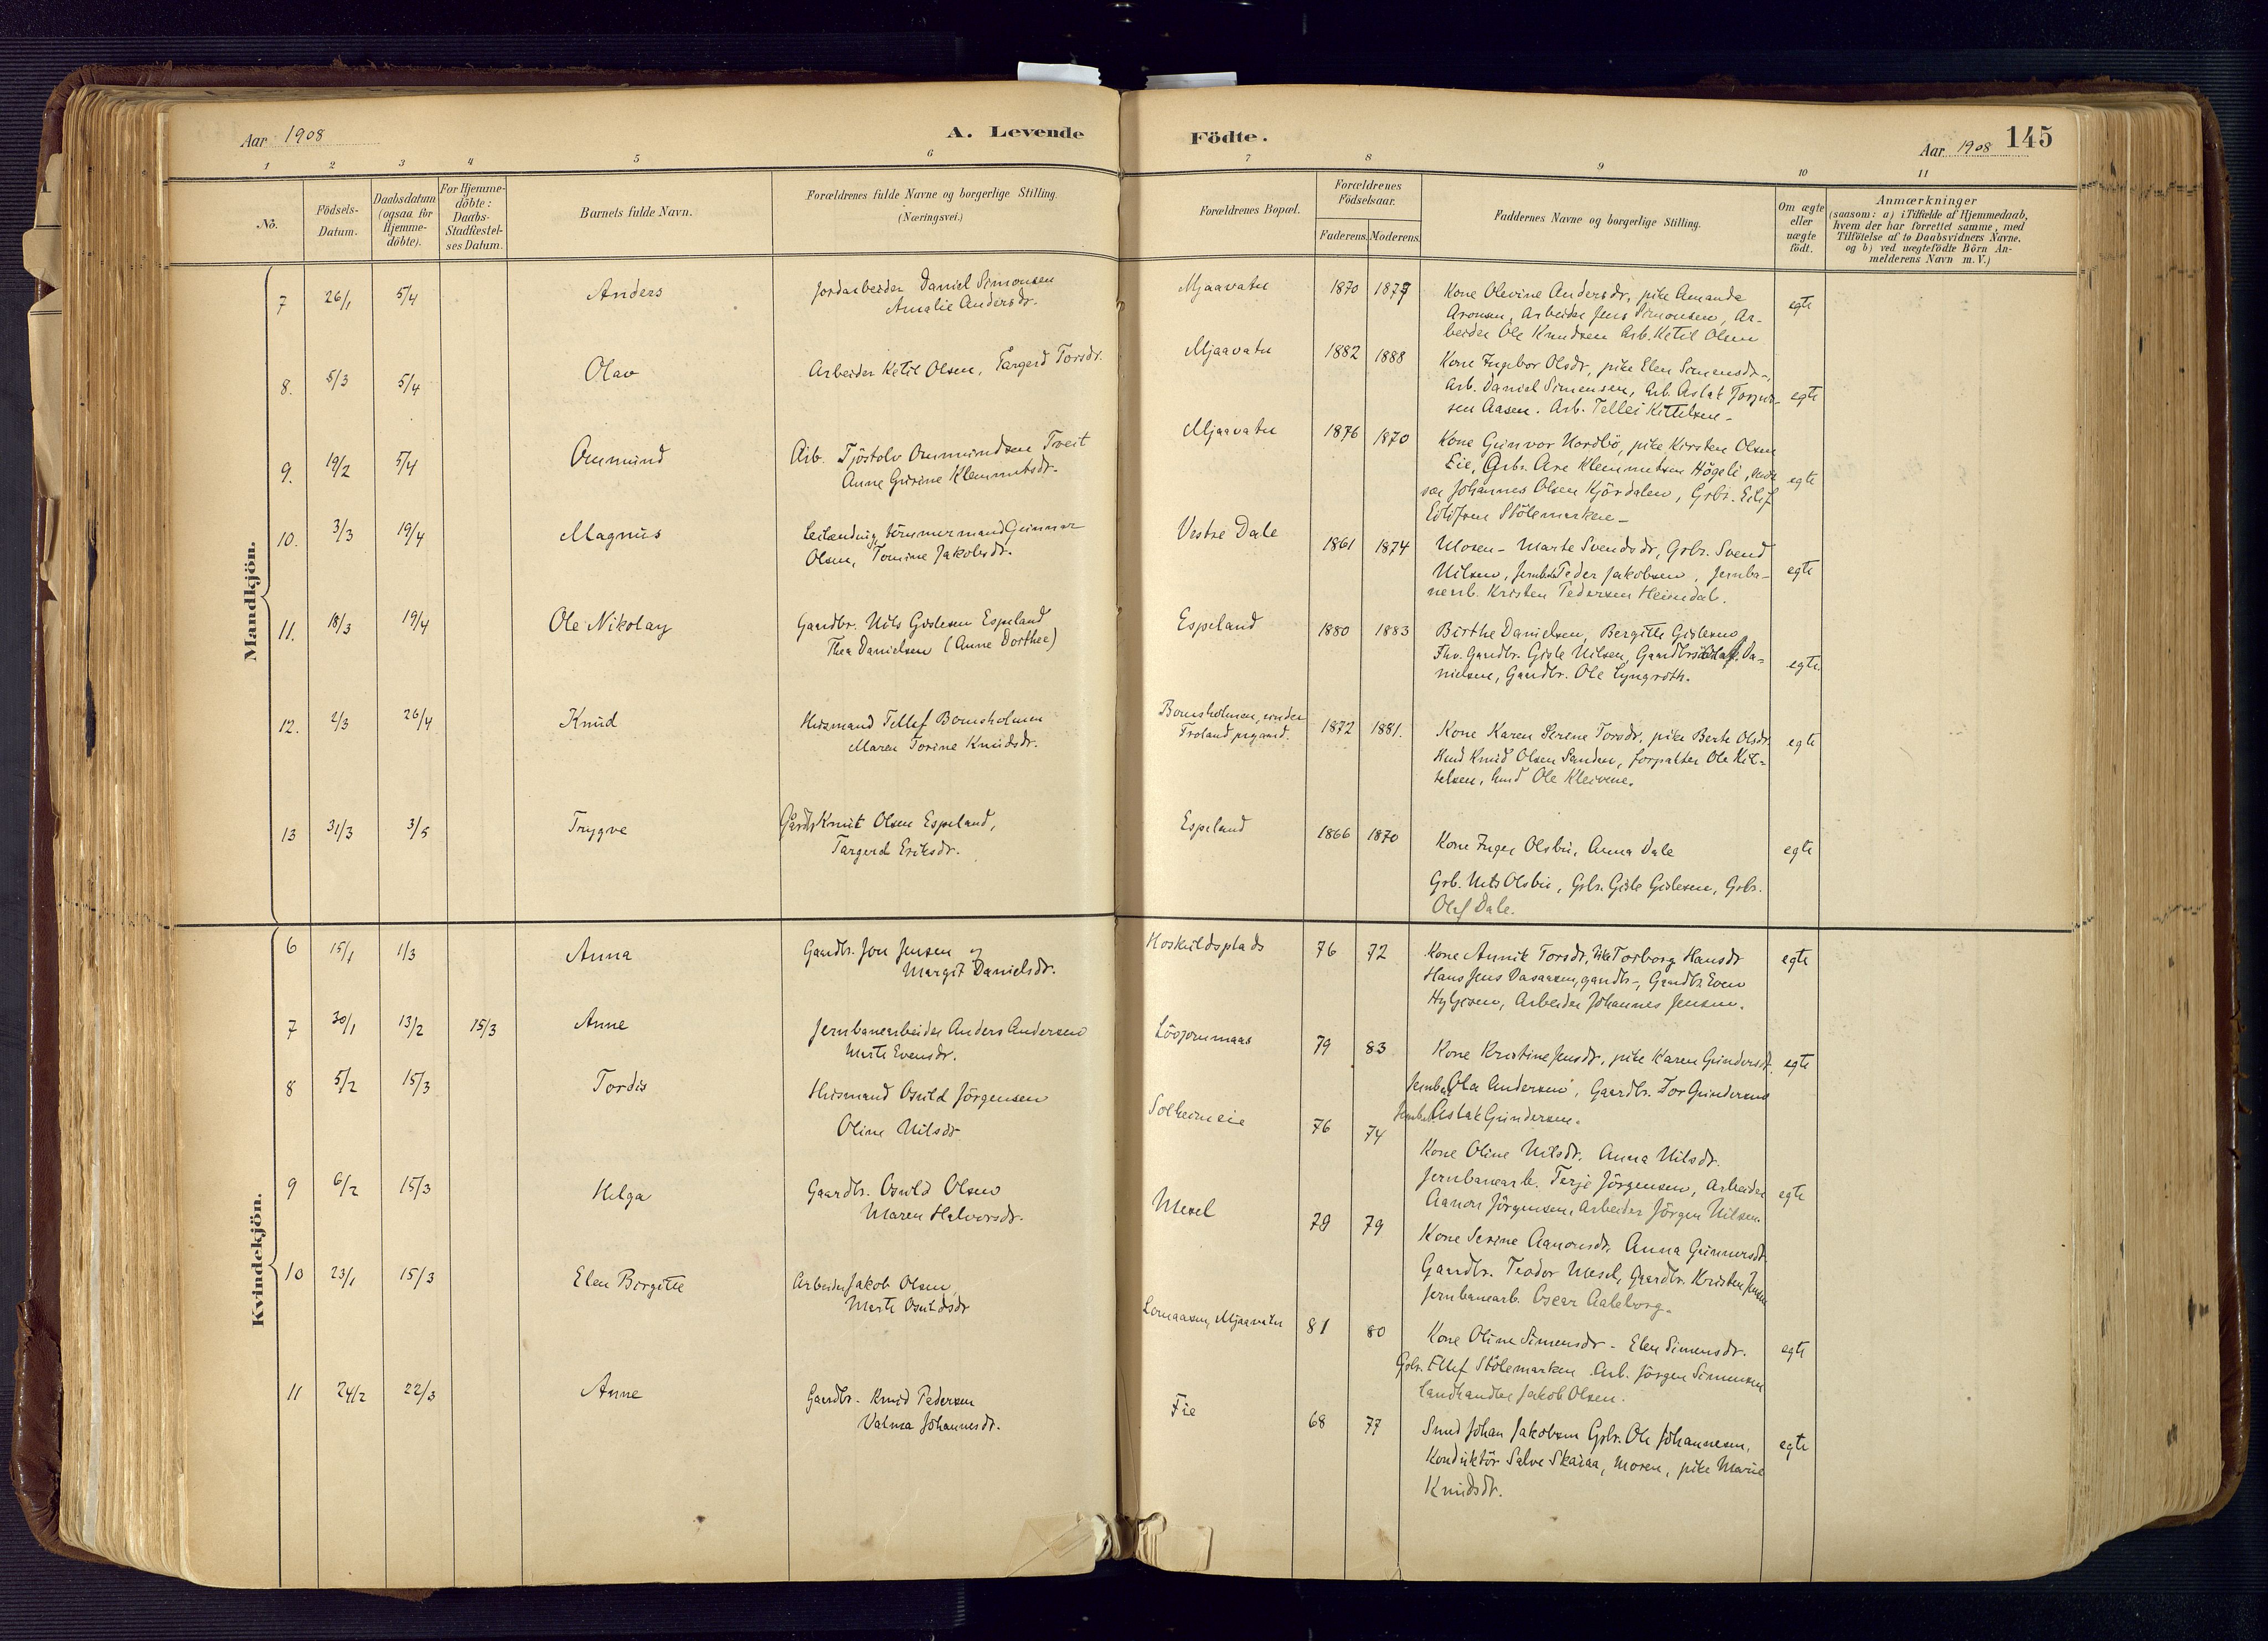 Aar 1908
A. Levende
Födte.
Aar 1908 145
1 2 3 4 5 6 7 8 9 10 11
No.
Födsels-
Datum.
Daabsdatum
(ogsaa for
Hjemme-
döbte).
For Hjemme-
döbte:
Daabs-
Stadfæstel-
ses Datum.
Barnets fulde Navn.
Forældrenes fulde Navne og borgerlige Stilling.
(Næringsvei.)
Forældrenes Bopæl.
Forældrenes
Födselsaar.
Faderens. Moderens.
Faddernes Navne og borgerlige Stilling.
Om ægte
eller
uægte
födt.
Anmærkninger
(saasom: a) i Tilfælde af Hjemmedaab,
hvem der har forrettet samme, med
Tilföielse af to Daabsvidners Navne,
og b) ved uægtefödte Börn An-
melderens Navn m. V.)
Mandkjön.
7 26/1 5/4 Anders
Jordarbeider Daniel Simonsen
Amalie Andersdr.
Mjaavatn 1870 1877
Kone Olevine Andersdr, pike Amanda
Aronsen, Arbeider Jens Simonsen, Ar-
beider Ole Knudsen Arb. Ketil Olsen
egte
8. 5/3 5/4 Olav
Arbeider Ketil Olsen, Targerd Torsdr.
Mjaavatn 1882 1888
Kone Ingebor Olsdr, pike Elen Simensdr-,
Arb. Daniel Simensen, Arb. Aslak
sen Aasen. Arb. Tellei Kittelsen-
egte
9. 19/2 5/4 Ommund
Arb. Tjöstolv Ommundsen Tveit
Anne Gurine Klemmetsdr.
Mjaavatn 1876 1870
Kone Gunvor Nordbö, pike Kirsten Olsen
Eie, Grbr. Are Klemmetsen Högeli,
Johannes Olsen Kjördalen, Grbr. Eilif
Eilifsen Stölemarken-
egte
10. 3/3 19/4 Magnus
Leilending, tömmermand Gunnar
Olsen, Tomine Jakobsdr.
Vestre Dale 1861 1874
Moren- Marte Svendsdr, Grbr. Svend
Nilsen, Jernb. Peder Jakobsen, Jernba-
nearb. Kristen Pedersen Heimdal.
egte
11. 18/3 19/4 Ole Nikolay
Gaardbr. Nils Gislesen Espeland
Thea Danielsen (Anne Dorthee)
Espeland 1880 1883
Birthe Danielsen, Bergitte Gislesen,
Fhv. Gaardbr. Gisle Nilsen, Gaardbrs. Olaf Da-
nielsen, Gaardbr. Ole Lyngroth.
egte
12. 2/3 26/4 Knud
Husmand Tellef Bomsholmen
Maren Torine Knudsdr.
Bomsholmen, under
Froland prgaard. 1872 1881.
Kone Karen Serine Torsdr, pike Berte Olsdr.
Husmd Knud Olsen Sanden, forpakter Ole Kit-
telsen, husmd Ole Kleivene.
egte
13 31/3 3/5 Trygve
Gårdbr Knut Olsen Espeland,
Targerd Eriksdr.
Espeland 1866 1870
Kone Inger Olsbu, Anna Dale
Grb. Nils Olsbu, Grbr. Gisle Gislesen, Grbr.
Olaf Dale.
egte
Kvindekjön.
6 15/1 1/3 Anna
Gaardbr. Jon Jensen og
Margit Danielsdr.
Hoskuldsplads 76 72
Kone Annik Torsdr, Pike Torborg Hansdr
Hans Jens Dasaasen, gaardbr-, Gaardbr. Even
Arbeider Johannes Jensen.
egte
7 30/1 13/2 15/3 Anne
Jernbanearbeider Anders Andersen
Marte Evensdr.
Lövjommaas 79 83
Kone Kristine Jensdr, pike Karen Gundersdr.
Jernba. Ola Andersen, Gaardbr. Tor Gundersen
Jernba. Aslak Gundersen.
egte
8 5/2 15/3 Tordis
Husmand Osuld Jörgensen
Oline Nilsdr
Solheimeie 76 74
Kone Oline Nilsdr. Anna Nilsdr.
Jernbanearb. Terje Jörgensen, Arbeider
Aanon Jörgensen, Arbeider Jörgen Nilsen.
egte
9 6/2 15/3 Helga
Gaardbr. Osuld Olsen
Maren Halvorsdr.
Mesel 79 79
Kone Serine Aanonsdr. Anna Gunnersdr.
Gaardbr. Teodor Mesel, Gaardbr. Kristen Jensen
Jernbanearb. Oscar Aaleborg.
10 23/1 15/3 Elen Birgitte
Arbeider Jakob Olsen,
Marte Osuldsdr
Lomaasen, Mjaavatn 81 80
Kone Oline Simensdr - Elen Simensdr.
Grbr. Ellef Stölemarken Arb. Jörgen Simensen
landhandler Jakob Olsen.
egte
11 24/2 22/3 Anne
Gaardbr. Knud Pedersen
Valma Johannesdr.
Fie 68 77
Smed Johan Jakobsen Grbr. Ole Johannesen,
Konduktör Salve Skaiaa, Moren, pike Marie
Knudsdr.
egte